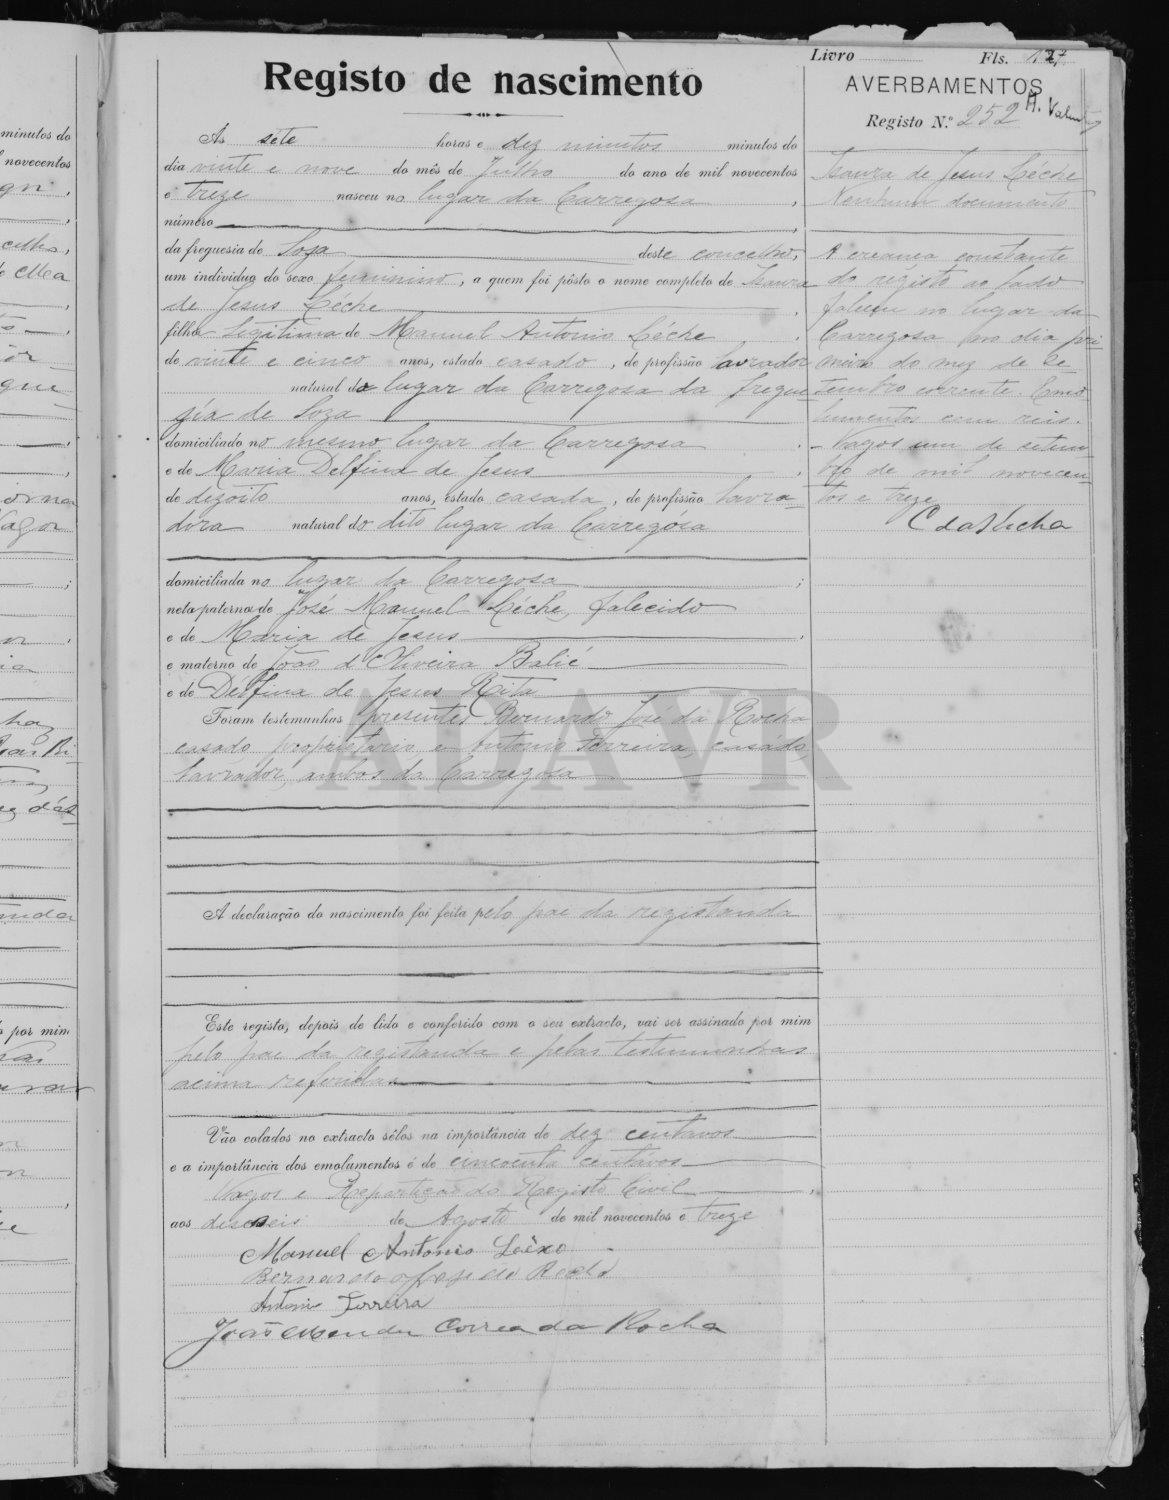 Livro Fls. 127
Registo de nascimento
AVERBAMENTOS
Registo N.º 252
Às sete horas e dez minutos minutos do
dia vinte e nove do mês de Julho do ano de mil novecentos
e treze nasceu no lugar da Carregosa ,
número
da freguesia de Soza deste concelho,
um individuo do sexo femininino, a quem foi pôsto o nome completo de Isaura
de Jesus Léche
filha legitima de Manuel Antonio Léche
de vinte e cinco anos, estado casado, de profissão lavrador
natural do lugar da Carregosa da fregue
sia de Soza
domiciliado no mesmo lugar da Carregosa
e de Maria Delfina de Jesus
de dezoito anos, estado casada, de profissão lavra-
dora natural do dito lugar da Carregósa
domiciliada no lugar da Carregosa ;
neta paterna de José Manuel Léche, falecido
e de Maria de Jesus ,
e materno de João d'Oliveira Balié
e de Délfina de Jesus Rita
Foram testemunhas presentes Bernardo José da Rocha
casado, proprietario, e Antonio Ferreira, casádo,
lavrador, ambos da Carregosa
A declaração do nascimento foi feita pelo pai da registanda
Este registo, depois de lido e conferido com o seu extracto, vai ser assinado por mim
pelo pai da registanda e pelas testemunhas
acima referidas
Vão colados no extracto sêlos na importância de dez centavos
e a importância dos emolumentos é de cincoenta centávos
Vagos e Repartição do Registo Civil ,
aos deseseis de Agosto de mil novecentos e treze
Manuel Antonio Leixo
Bernardo José da Rocha
Antonio Ferreira
João Mendes Correa da Rocha
Isaura de Jesus Léche
Nenhum documento
A creança constante
do registo ao lado
faleceu no lugar da
Carregosa no dia pri-
meiro do mez de Se-
tembro corrente. Emo-
lumentos cem reis.
- Vagos um de setem-
bro de mil novecen-
tos e treze
C da Rocha
ADAVR
minutos do
novecentos
por mim